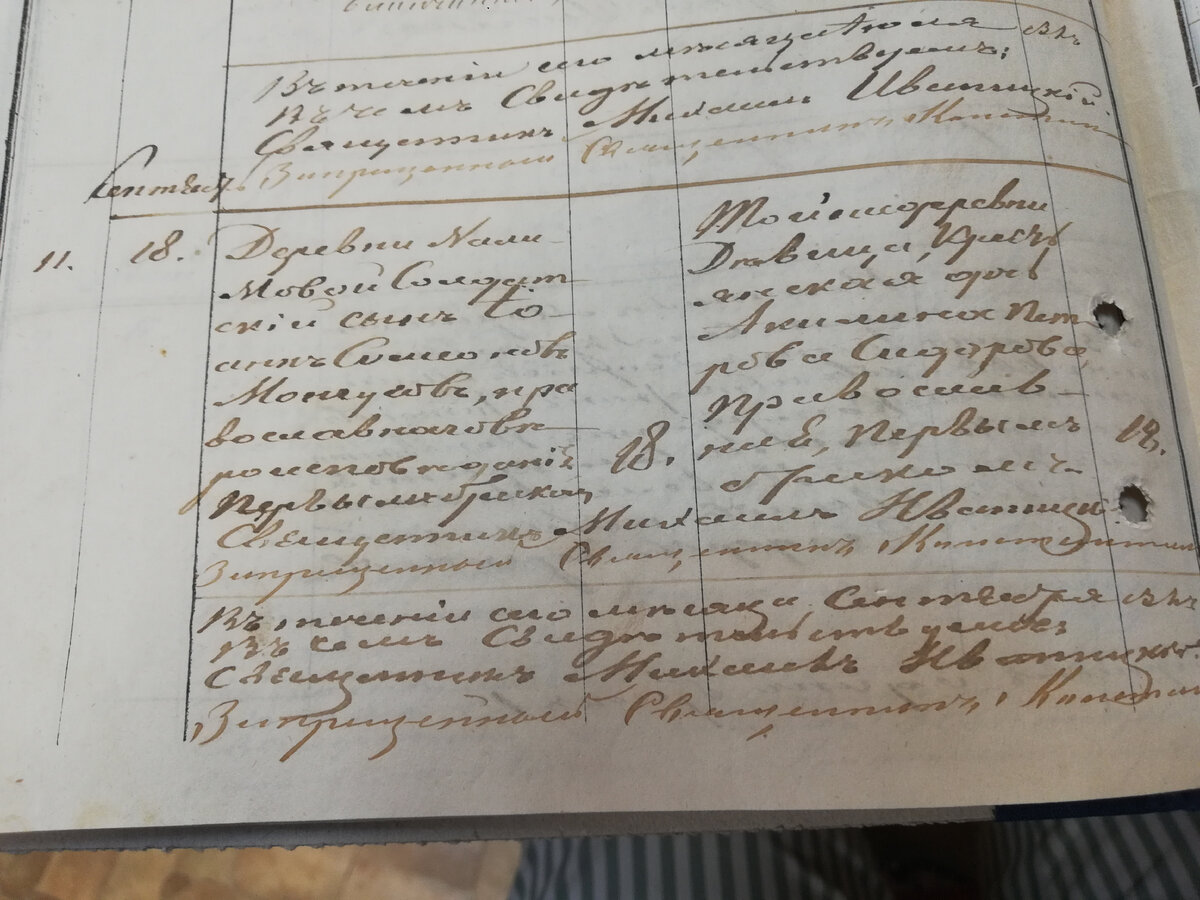 Въ теченіи сего мѣсяца Іюля
Въ чемъ Свидѣтельствуемъ:
Священникъ Михаилъ Иваницкій
Запрещенный Священникъ, Констан
Сентябрь
11. 18. Деревни Нали-
мовой Солдат-
скій сынъ Іо-
аннъ Симеоновъ
православнаго вѣ-
роисповѣданія
Первымъ бракомъ
18.
Той же деревни
Дѣвица, Кресть
янская дочь
Акилина Пет-
рова Сидорова,
Православ-
наѣ, Первымъ
бракомъ
18.
Священникъ Михаилъ Иваницк
Запрещенный Священникъ, Константин
Въ теченіи сего мѣсяца Сентября
Въ чемъ Свидѣтельствуемъ:
Священникъ Михаилъ Иваницкій
Запрещенный Священникъ, Констан